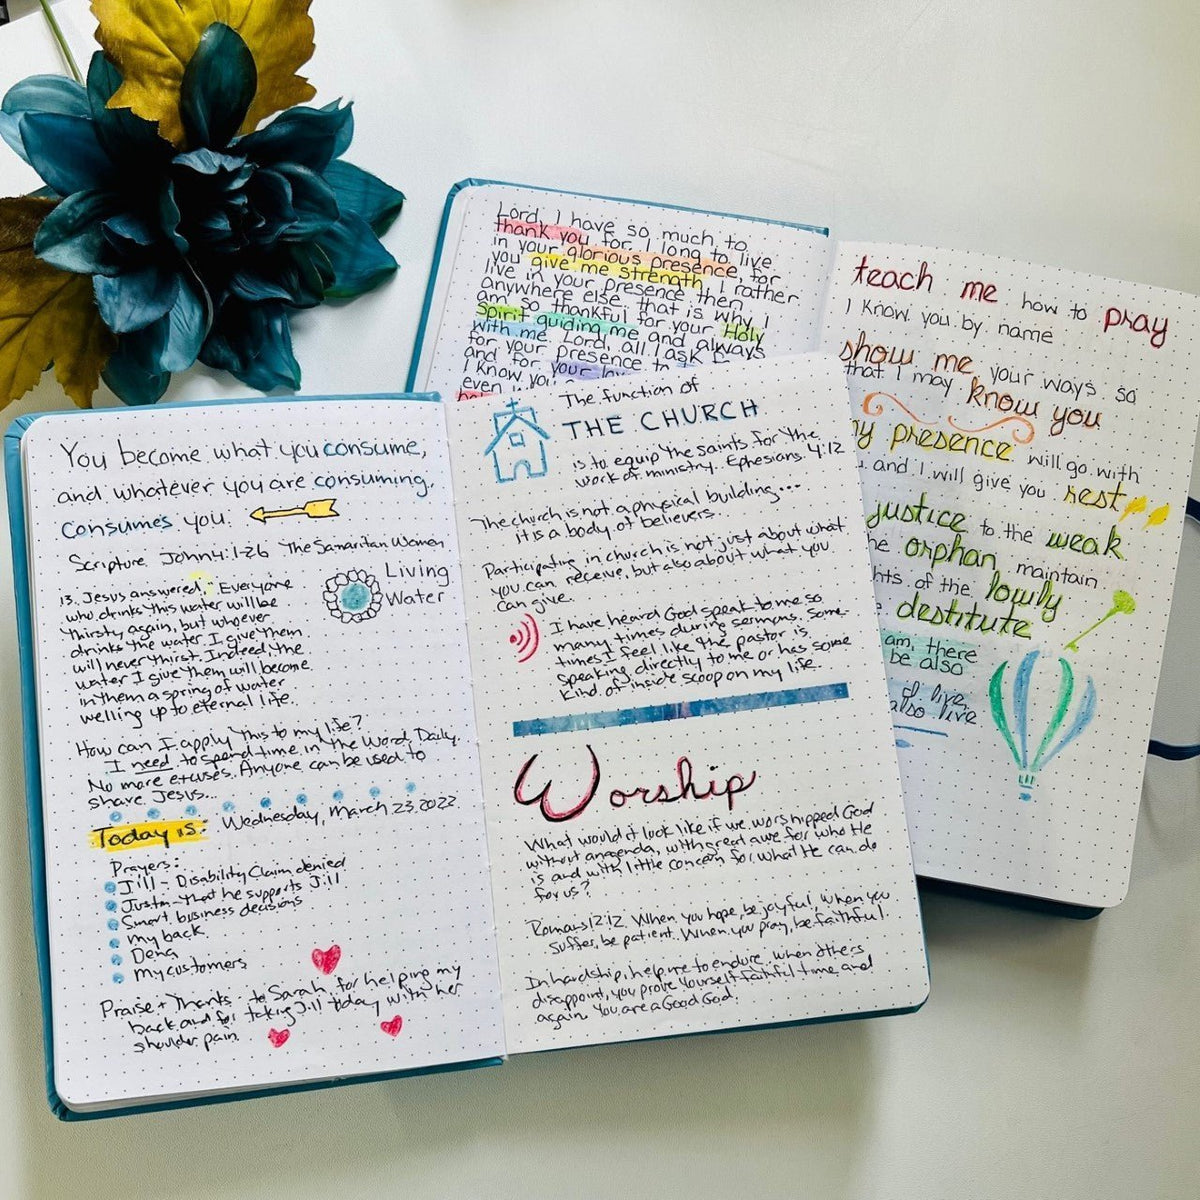 You become what you consume,
and whatever you are consuming,
consumes you.
Scripture John 4:1-26 The Samaritan Women
13. Jesus answered, "Everyone
who drinks this water will be
thirsty again, but whoever
drinks the water I give them
will never thirst. Indeed, the
water I give them will become
in them a spring of water
welling up to eternal life.
Living
Water
How can I apply this to my life?
I need to spend time in the Word, Daily.
No more excuses. Anyone can be used to
share Jesus...
Today is: Wednesday, March 23. 2022
Prayers:
Jill - Disability Claim denied
Justin - that he supports Jill
Smart business decisions
my back
Dena
my customers
Praise + Thanks: to Sarah for helping my
back and for taking Jill today with her
shoulder pain.
The function of
THE CHURCH
is to equip the saints for the
work of ministry. Ephesians 4:12
The church is not a physical building...
it is a body of believers..
Participating in church is not just about what
you can receive, but also about what you
can give.
I have heard God speak to me so
many times during sermons. Some-
times I feel like the pastor is
speaking directly to me or has some
kind of inside scoop on my life.
Worship
What would it look like if we worshipped God
without anagenda, with great awe for who He
is and with little concern for what He can do
for us?
Romans 12:12 When you hope, be joyful, when you
suffer, be patient. When you pray, be faithful.
In hardship, help me to endure, when others
disappoint, you prove yourself faithful time and
again. You are a Good God.
Lord, I have so much to
thank you for. I long to live
in your glorious presence, for
you give me strength. I rather
live in your presence then
anywhere else. that is why I
am so thankful for your Holy
spirit guiding me and always
with me. Lord, all I ask
for your presence to
and for your
I know you
even
teach me how to pray
I know you by name
show me your ways so
that I may know you
my presence will go with
and I will give you rest
justice to the weak
orphan, maintain
of the lowly
destitute
am, there
be also
I live,
also live